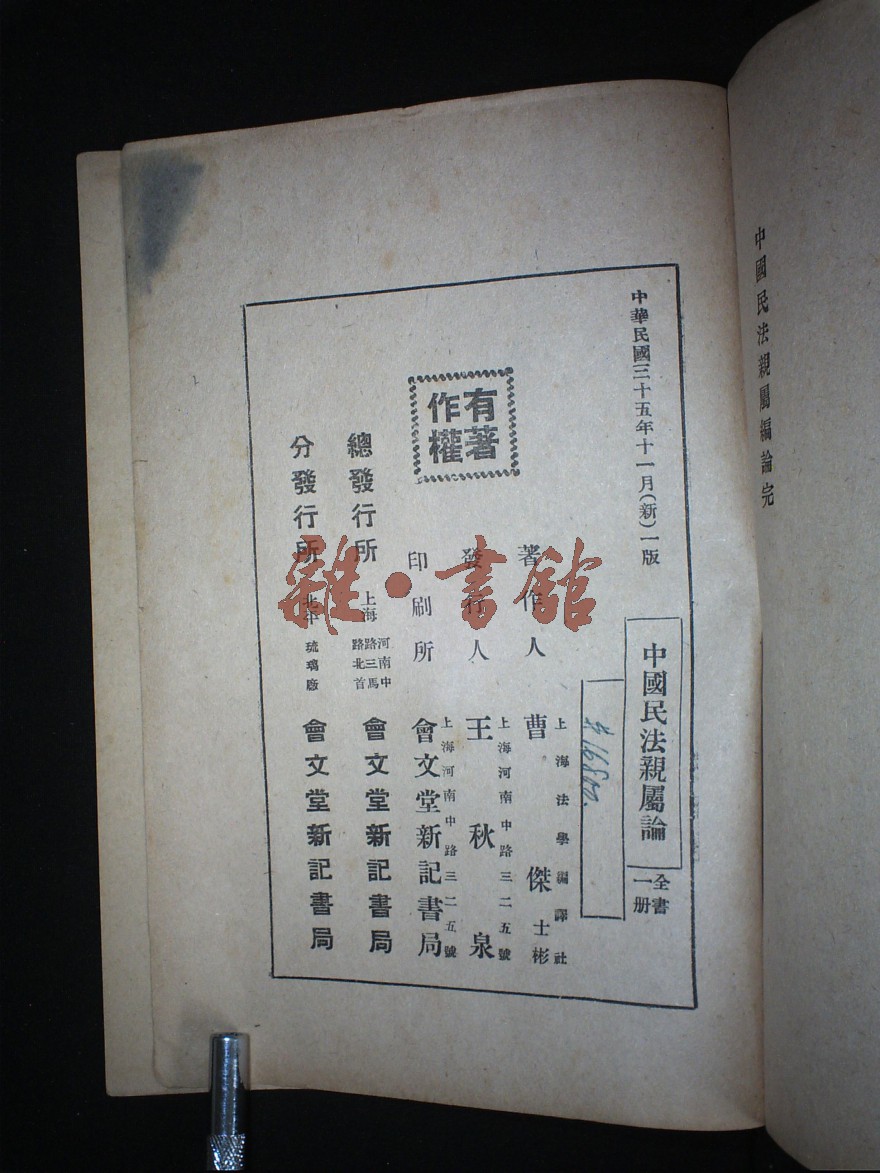 中國民法親屬編論完
中華民國三十五年十一月(新)一版
中國民法親屬論
全書一册
上海法學編譯社
著作人 曹傑 士彬
上海河南中路三二五號
發行人 王秋泉
上海河南中路三二五號
印刷所 會文堂新記書局
有著作權
總發行所 上海 河南中路三馬路北首 會文堂新記書局
分發行所 北平 琉璃廠 會文堂新記書局
雜·書館